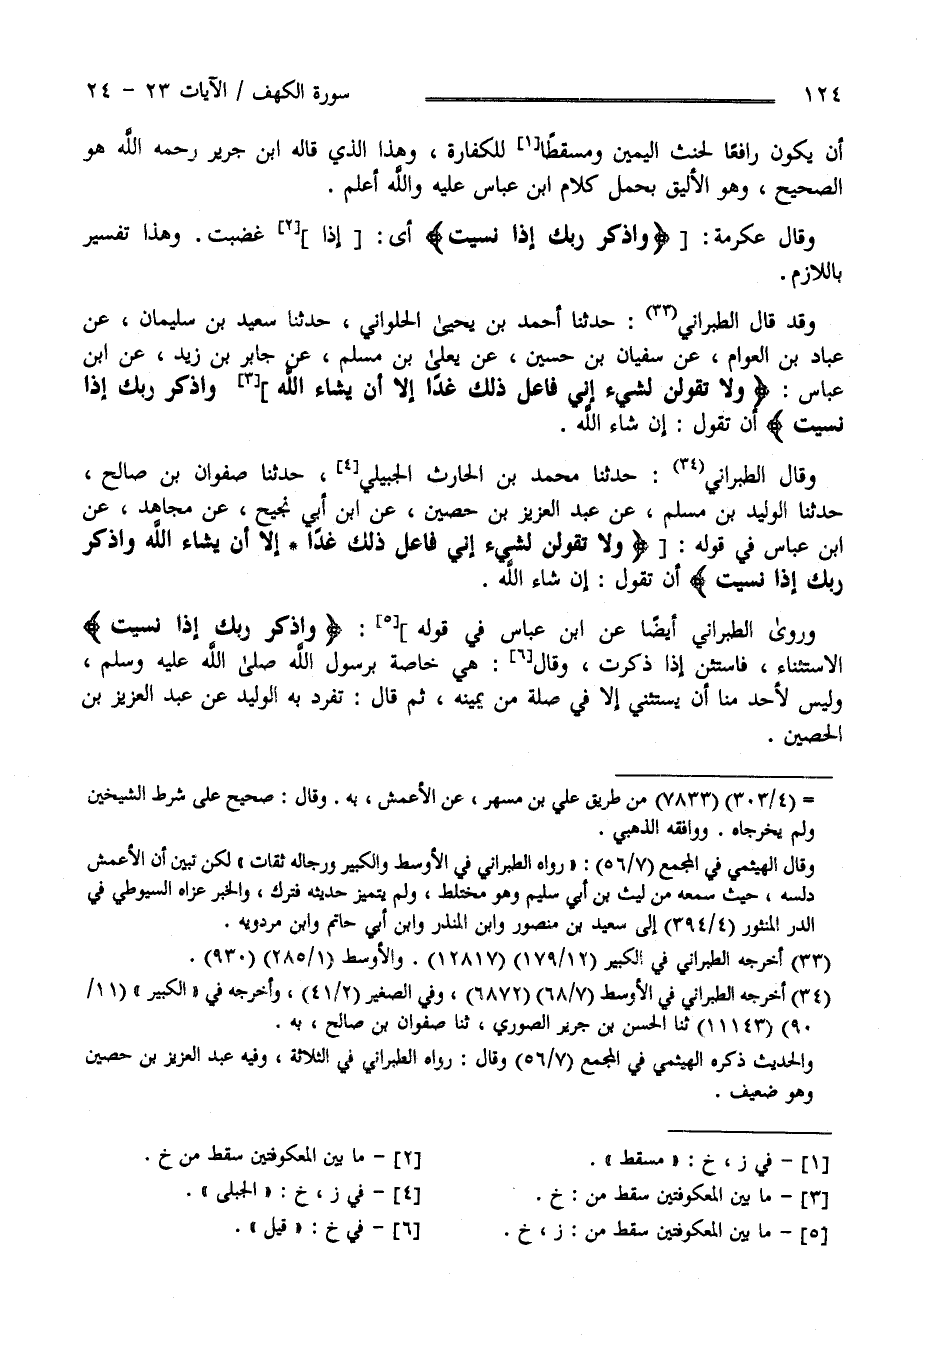 ١٢٤ سورة الكهف / الآيات ٢٣ - ٢٤
أن يكون رافعًا لحنث اليمين ومسقطًا[١] للكفارة ، وهذا الذي قاله ابن جرير رحمه اللَّه هو
الصحيح ، وهو الأليق بحمل كلام ابن عباس عليه واللَّه أعلم .
وقال عكرمة: [ ﴿واذكر ربك إذا نسيت﴾ أى: [ إذا ][٢] غضبت. وهذا تفسير
باللازم.
وقد قال الطبراني(٣٣) : حدثنا أحمد بن يحيىٰ الحلواني ، حدثنا سعيد بن سليمان ، عن
عباد بن العوام ، عن سفيان بن حسين ، عن يعلىٰ بن مسلم ، عن جابر بن زيد ، عن ابن
عباس : ﴿ ولا تقولن لشيء إني فاعل ذلك غدًا إلا أن يشاء اللَّه ][٣] واذكر ربك إذا
نسيت ﴾ أن تقول : إن شاء اللَّه .
وقال الطبراني(٣٤) : حدثنا محمد بن الحارث الجبيلي[٤] ، حدثنا صفوان بن صالح ،
حدثنا الوليد بن مسلم ، عن عبد العزيز بن حصين ، عن ابن أبي نجيح ، عن مجاهد ، عن
ابن عباس في قوله : [ ﴿ ولا تقولن لشيء إني فاعل ذلك غدًا * إلا أن يشاء اللَّه واذكر
ربك إذا نسيت ﴾ أن تقول : إن شاء اللَّه .
وروىٰ الطبراني أيضًا عن ابن عباس في قوله ][٥] : ﴿ واذكر ربك إذا نسيت ﴾
الاستثناء ، فاستثن إذا ذكرت ، وقال[٦] : هي خاصة برسول اللَّه صلىٰ اللَّه عليه وسلم ،
وليس لأحد منا أن يستثني إلا في صلة من يمينه ، ثم قال : تفرد به الوليد عن عبد العزيز بن
الحصين .
= (٣٠٣/٤) (٧٨٣٣) من طريق علي بن مسهر ، عن الأعمش ، به . وقال : صحيح على شرط الشيخين
ولم يخرجاه . ووافقه الذهبي .
وقال الهيثمي في المجمع (٥٦/٧) : « رواه الطبراني في الأوسط والكبير ورجاله ثقات » لكن تبين أن الأعمش
دلسه ، حيث سمعه من ليث بن أبي سليم وهو مختلط ، ولم يتميز حديثه فترك ، والخبر عزاه السيوطي في
الدر المنثور (٣٩٤/٤) إلى سعيد بن منصور وابن المنذر وابن أبي حاتم وابن مردويه .
(٣٣) أخرجه الطبراني في الكبير (١٧٩/١٢) (١٢٨١٧) . والأوسط (٢٨٥/١) (٩٣٠) .
(٣٤) أخرجه الطبراني في الأوسط (٦٨/٧) (٦٨٧٢) ، وفي الصغير (٤١/٢) ، وأخرجه في « الكبير » (١١/
٩٠) (١١١٤٣) ثنا الحسن بن جرير الصوري ، ثنا صفوان بن صالح ، به .
والحديث ذكره الهيثمي في المجمع (٥٦/٧) وقال : رواه الطبراني في الثلاثة ، وفيه عبد العزيز بن حصين
وهو ضعيف .
[١] - في ز ، خ : « مسقط » . [٢] - ما بين المعكوفتين سقط من خ .
[٣] - ما بين المعكوفتين سقط من : خ . [٤] - في ز ، خ : « الجبلى » .
[٥] - ما بين المعكوفتين سقط من : ز ، خ . [٦] - في خ : « قيل » .